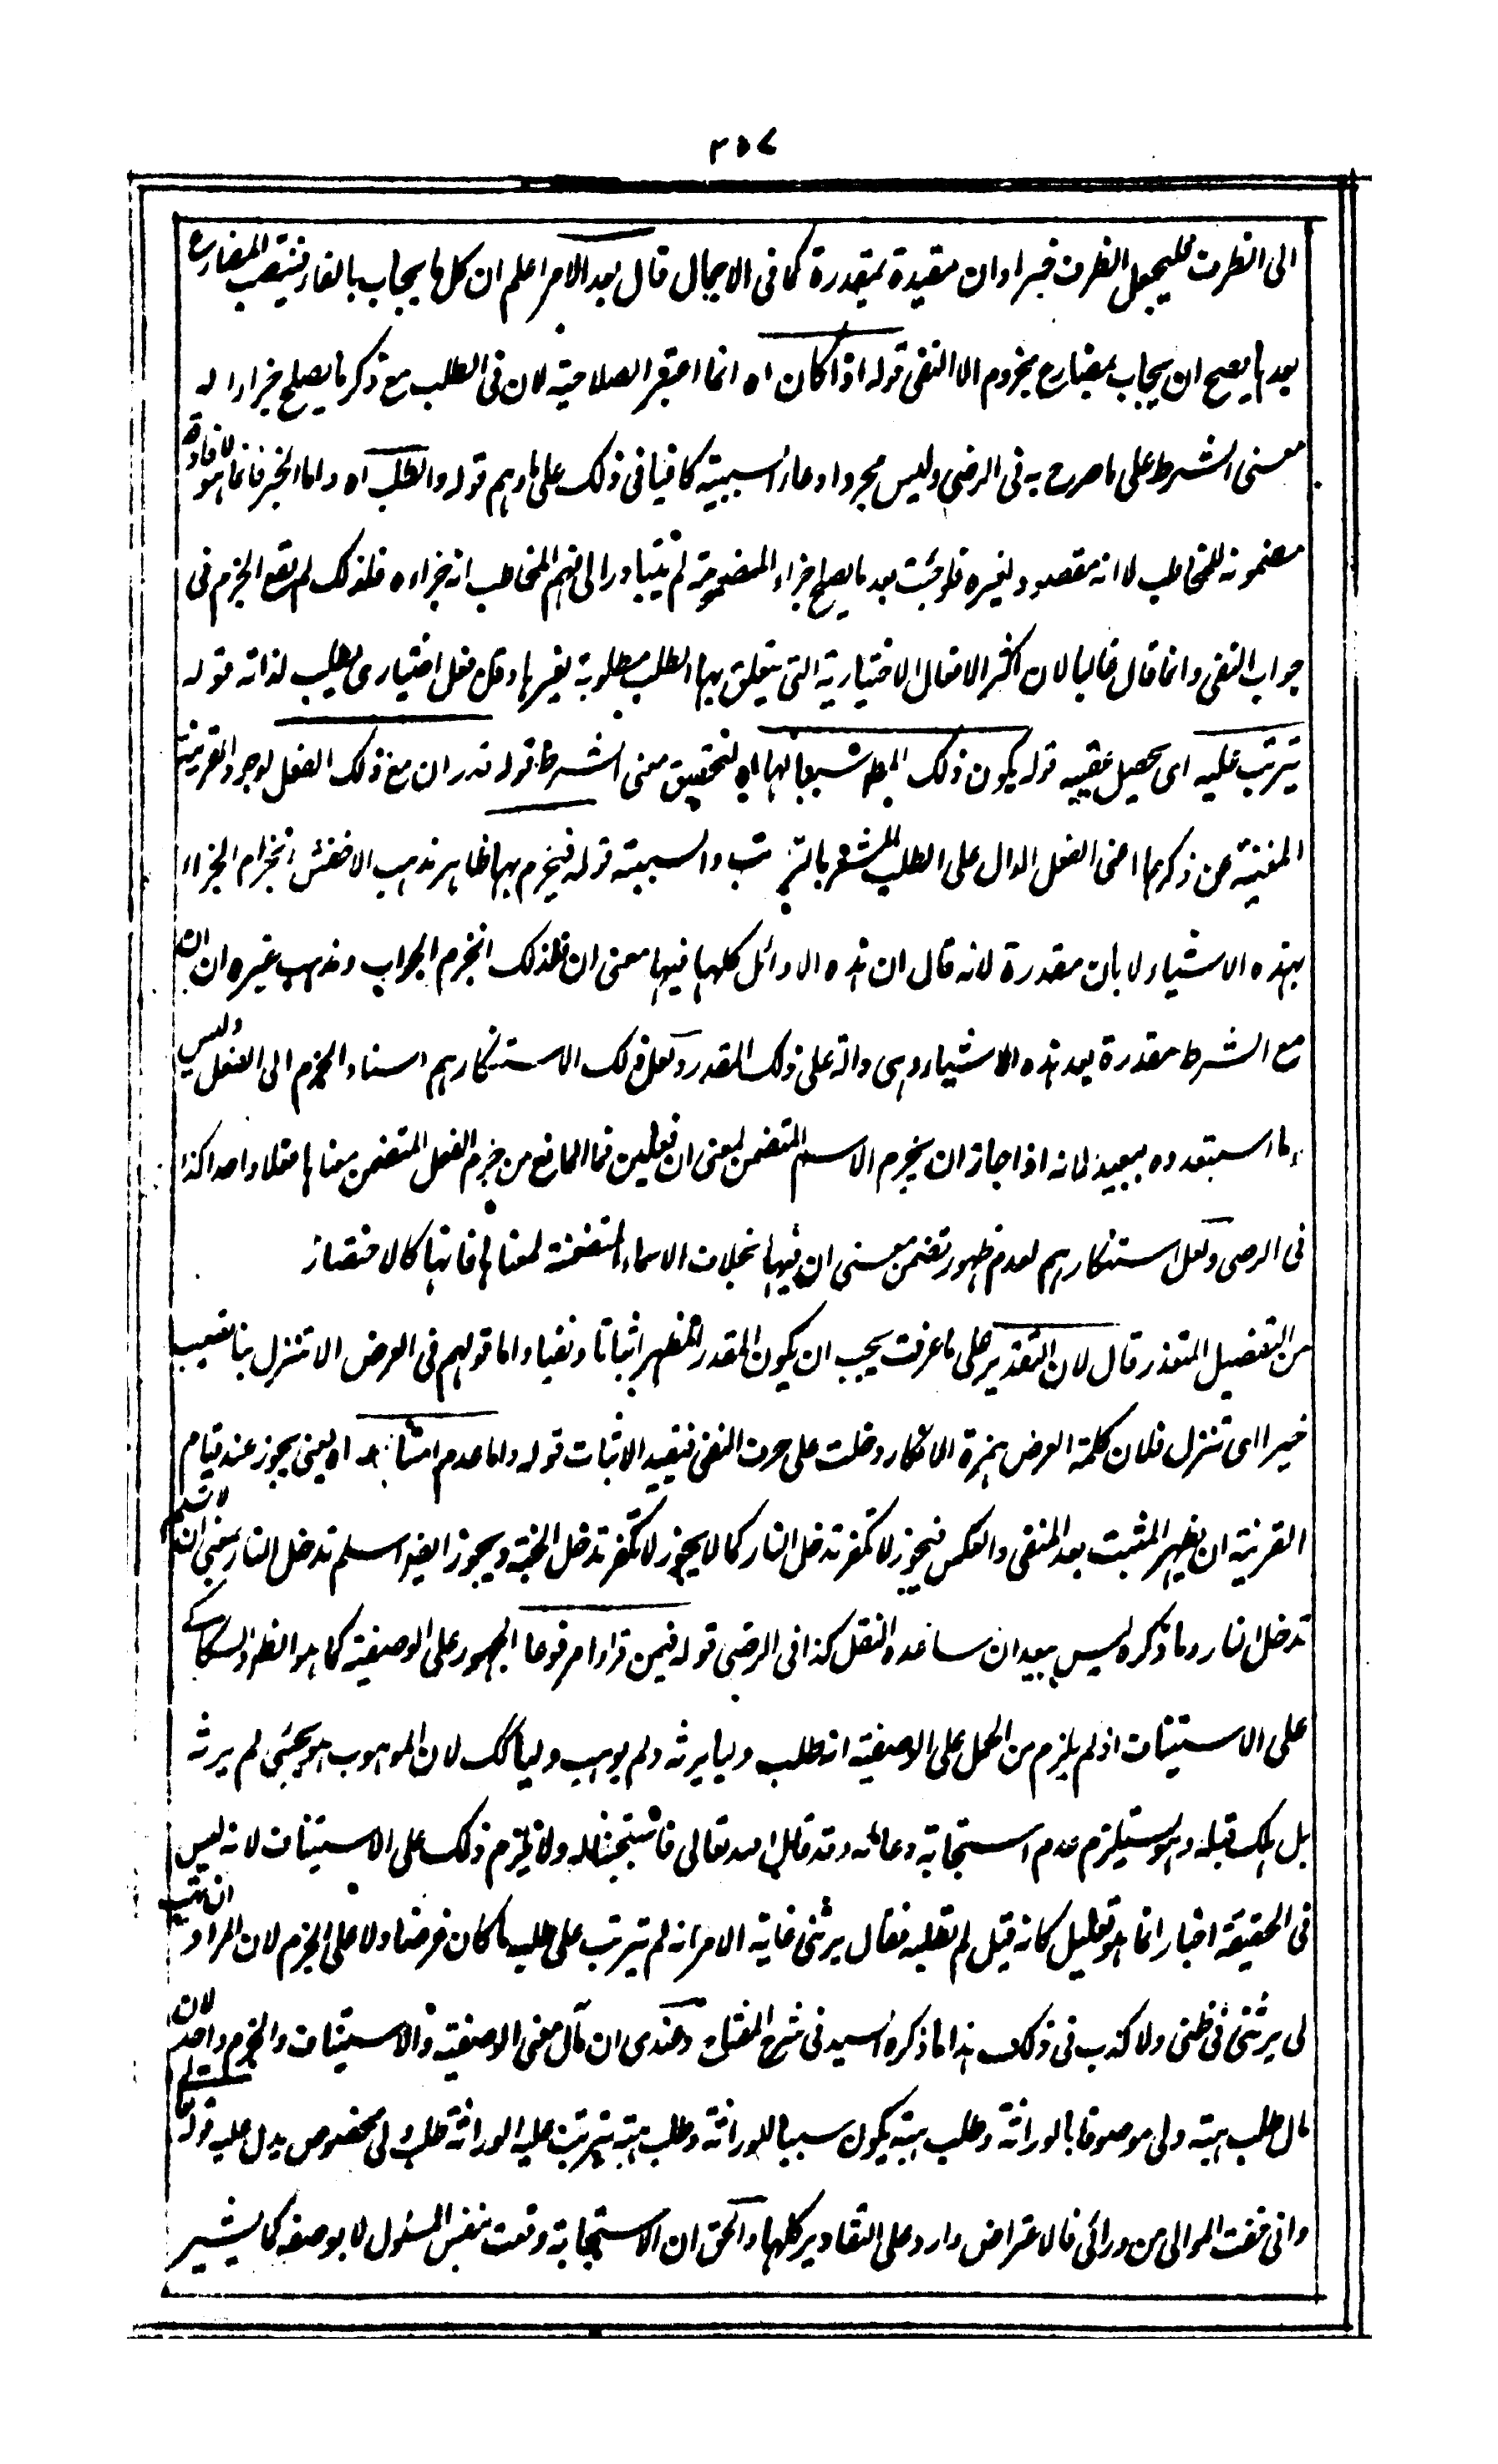 ٣٥٧
الى الظرف فليجعل الظرف خبرا وان مقيدة بمقدرة كما فى الاجمال قال بعد الامر اعلم ان كل ما يجاب بالفاء فينتصب المضارع
بعدها يصح ان يجاب بمضارع مجزوم الا النفى قوله اذا كان اه انما اعتبر الصلاحية لان فى الطلب مع ذكر ما يصلح جزاء له
معنى الشرط على ما صرح به فى الرضى وليس مجرد ادعاء السببية كافيا فى ذلك على ما وهم قوله والطلب اه واما الخبر فانما هو لافادة
مضمونه للمخاطب لا انه مقصود لغيره فلو جئت بعد ما يصلح جزاء لمضمونه لم يتبادر الى فهم المخاطب انه جزاءه فلذلك لم يقع الجزم فى
جواب النفى وانما قال غالبا لان اكثر الافعال الاختيارية التى يتعلق بها الطلب مطلوبة لغيرها وقل فعل اختيارى يطلب لذاته قوله
يترتب عليه اى يحصل عقيبه قوله يكون ذلك المط سببا لها اه لتحقيق معنى الشرط قوله قدر ان مع ذلك الفعل لوجود القرينة
المغنية عن ذكرها اعنى الفعل الدال على الطلب المشعر بالترتب والسببية قوله فيجزم بها ظاهر مذهب الاخفش انجزام الجزاء
بهذه الاشياء لا بان مقدرة لانه قال ان هذه الاوائل كلها فيها معنى ان فلذلك انجزم الجواب ومذهب غيره ان ان
مع الشرط مقدرة بعد هذه الاشياء وهى دالة على ذلك المقدر ولعل ذلك الاستنكارهم اسناد الجزم الى الفعل وليس
ما استبعدوه ببعيد لانه اذا جاز ان يجزم الاسم المتضمن لمعنى ان فعلين فما المانع من جزم الفعل المتضمن معناها فعلا واحدا كذا
فى الرضى ولعل استنكارهم لعدم ظهور تضمن معنى ان فيها بخلاف الاسماء المتضمنة لمعناها فانها كالاختصار
من التفصيل المتعذر قال لان التقدير على ما عرفت يجب ان يكون المقدر كالمظهر اثباتا ونفيا واما قولهم فى العرض الا تنزل بنا تصيب
خيرا اى تنزل فلان كلمة العرض همزة الانكار دخلت على حرف النفى فتفيد الاثبات قوله واما عدم امتثا اه يعنى يجوز عند قيام
القرينة ان يظهر المثبت بعد المنفى والعكس فيجوز لا تكفر تدخل النار كما لا يجوز لا تكفر تدخل الجنة ويجوز ايضا اسلم تدخل النار بمعنى ان لا تسلم
تدخل النار وما ذكره ليس ببعيد ان ساعده النقل كذا فى الرضى قوله فيمن قرا مرفوعا الجمهور على الوصفية كما هو الظ والسكاكى
على الاستيناف اذ لم يلزم من الحمل على الوصفية انه طلب وليا يرثه ولم يوهب وليا كك لان الموهوب هو يحيى لم يرثه
بل هلك قبله وهو يستلزم عدم استجابة دعائه وقد قال الله تعالى فاستجبنا له ولا يلزم ذلك على الاستيناف لانه ليس
فى الحقيقة اخبارا انما هو تعليل كانه قيل لم تطلبه فقال يرثنى غاية الامر انه لم يترتب على طلبه ما كان غرضا ولا على الجزم لان المراد ان تهب
لى يرثنى فى ظنى ولا كذب فى ذلك هذا ما ذكره السيد فى شرح المفتاح وعندى ان مآل معنى الوصفية والاستيناف والجزم واحد لان
مآل طلب هبة ولى موصوفا بالوراثة وطلب هبة يكون سببا للوراثة وطلب هبة يترتب عليه الوراثة طلب لى مخصوص يدل عليه قوله تعالى
وانى خفت الموالى من ورائى فالاعتراض وارد على التقادير كلها والحق ان الاستجابة وقعت بنفس المسئول لا بوصفه كما يشير